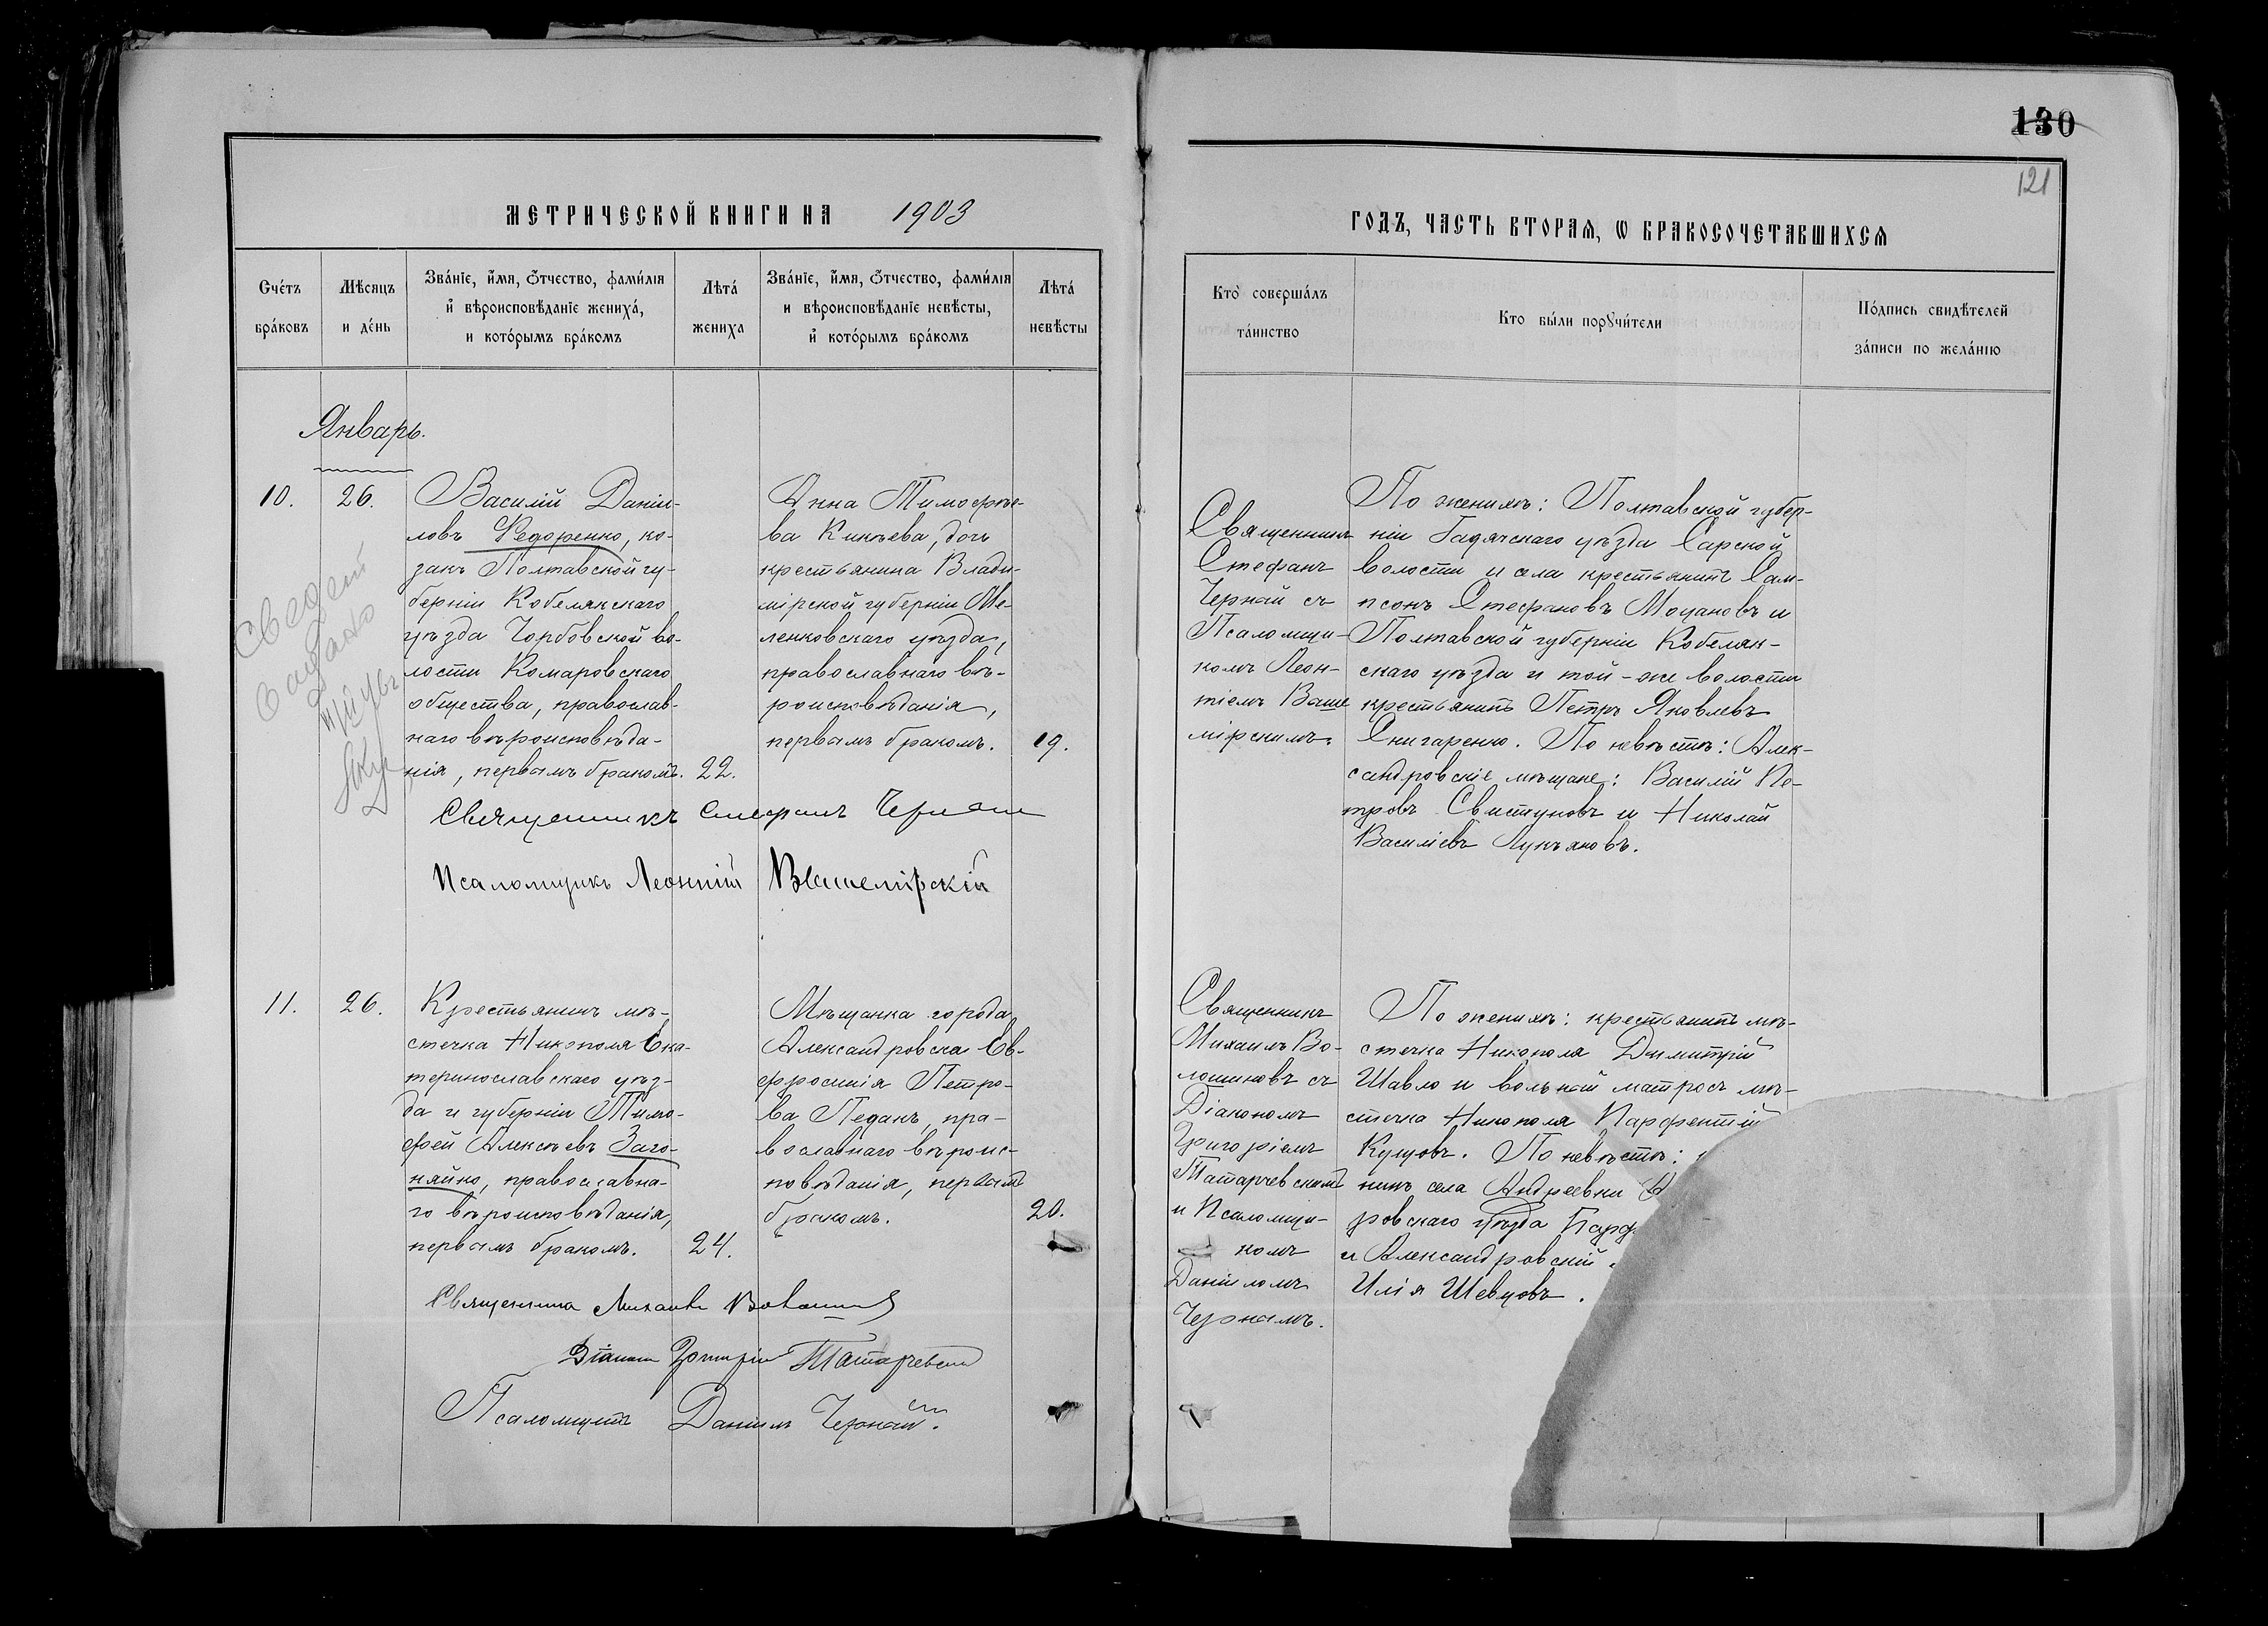 130
121
МЕТРИЧЕСКОЙ КНИГИ НА 1903
ГОДЪ, ЧАСТЬ ВТОРАЯ, Ѡ БРАКОСОЧЕТАВШИХСЯ
Счétъ
брáковъ
Мѣсяцъ
и дéнь
Звáнїе, и́мя, Ѻ́тчество, фами́лїя
и́ вѣроисповѣ́данїе женихá,
и котóрымъ брáкомъ
Лѣтá
жениха
Звáнїе, и́мя, Ѻ́тчество, фами́лїя
и вѣроисповѣ́данїе невѣ́сты,
и́ котóрымъ брáкомъ
Лѣтá
невѣ́сты
Кто̀ совершáлъ
тáинство
Кто бы́ли порꙋчи́тели
Пóдпись свидѣ́телей
зáписи по желáнїю
Январь.
10.
26.
Василій Даніи-
ловъ Федоренко, ко-
закъ Полтавской гу-
берніи Кобелякскаго
уѣзда Чорбовской во-
лости Комаровскаго
общества, православ-
наго вѣроисповѣда-
нія, первымъ бракомъ.
22.
Анна Тимофѣе-
ва Кинѣева, дочь
крестьянина Влади-
мірской губерніи Ме-
ленковскаго уѣзда,
православнаго вѣ-
роисповѣданія,
первымъ бракомъ.
19.
Священникъ
Стефанъ
Черный съ
Псаломщи-
комъ Леон-
тіемъ Выше
мірскимъ.
По женихѣ: Полтавской губер-
ніи Гадячскаго уѣзда Сарской
волости и села крестьянинъ Сам-
псонъ Стефановъ Моцановъ и
Полтавской губерніи Кобеляк-
скаго уѣзда и той-же волости
крестьянинъ Петръ Яковлевъ
Снигаренко. По невѣстѣ: Алек-
сандровскіе мѣщане: Василій Пе-
тровъ Свистуновъ и Николай
Василіевъ Лукьяновъ.
Священникъ Стефанъ Черный
Псаломщикъ Леонтій Вышемірскій
11.
26.
Крестьянинъ мѣ-
стечка Никополя Ека-
теринославскаго уѣз-
да и губерніи Тимо-
фей Алексѣевъ Заго-
няйко, православна-
го вѣроисповѣданія,
первымъ бракомъ.
24.
Мѣщанка города
Александровска Ев-
фросинія Петро-
ва Педакъ, пра-
вославнаго вѣроис-
повѣданія, первымъ
бракомъ.
20.
Священникъ
Михаилъ Во-
лошиновъ съ
Діакономъ
Григоріемъ
Татарчевскимъ
и Псаломщи-
комъ
Даніиломъ
Чернымъ.
По женихѣ: крестьянинъ мѣ-
стечка Никополя Димитрій
Шавло и вольный матросъ мѣ-
стечка Никополя Парфентій
Куцовъ. По невѣстѣ:
нинъ села Андреевки А
ровскаго уѣзда Парф
и Александровскій
Илія Шевцовъ.
Священникъ Михаилъ Волошиновъ
Діаконъ Григорій Татарчевскій
Псаломщикъ Даніилъ Черный.